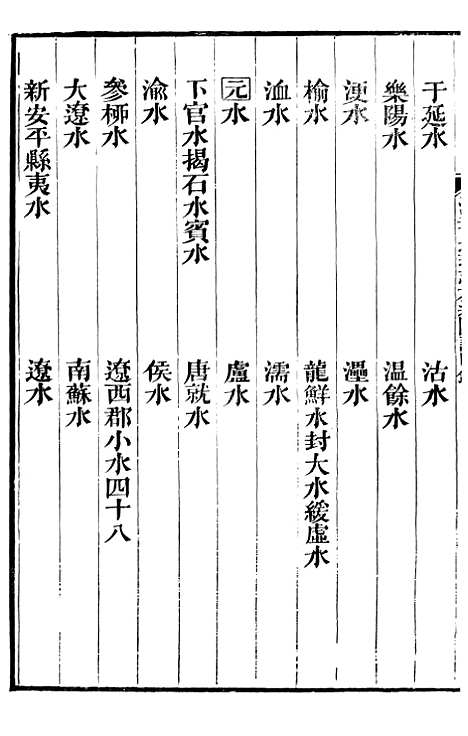 于延水　沽水
樂陽水　温餘水
浭水　灅水
榆水　龍鮮水封大水緩虛水
洫水　濡水
元水　盧水
下官水揭石水賓水　唐就水
渝水　侯水
參柳水　遼西郡小水四十八
大遼水　南蘇水
新安平縣夷水　遼水